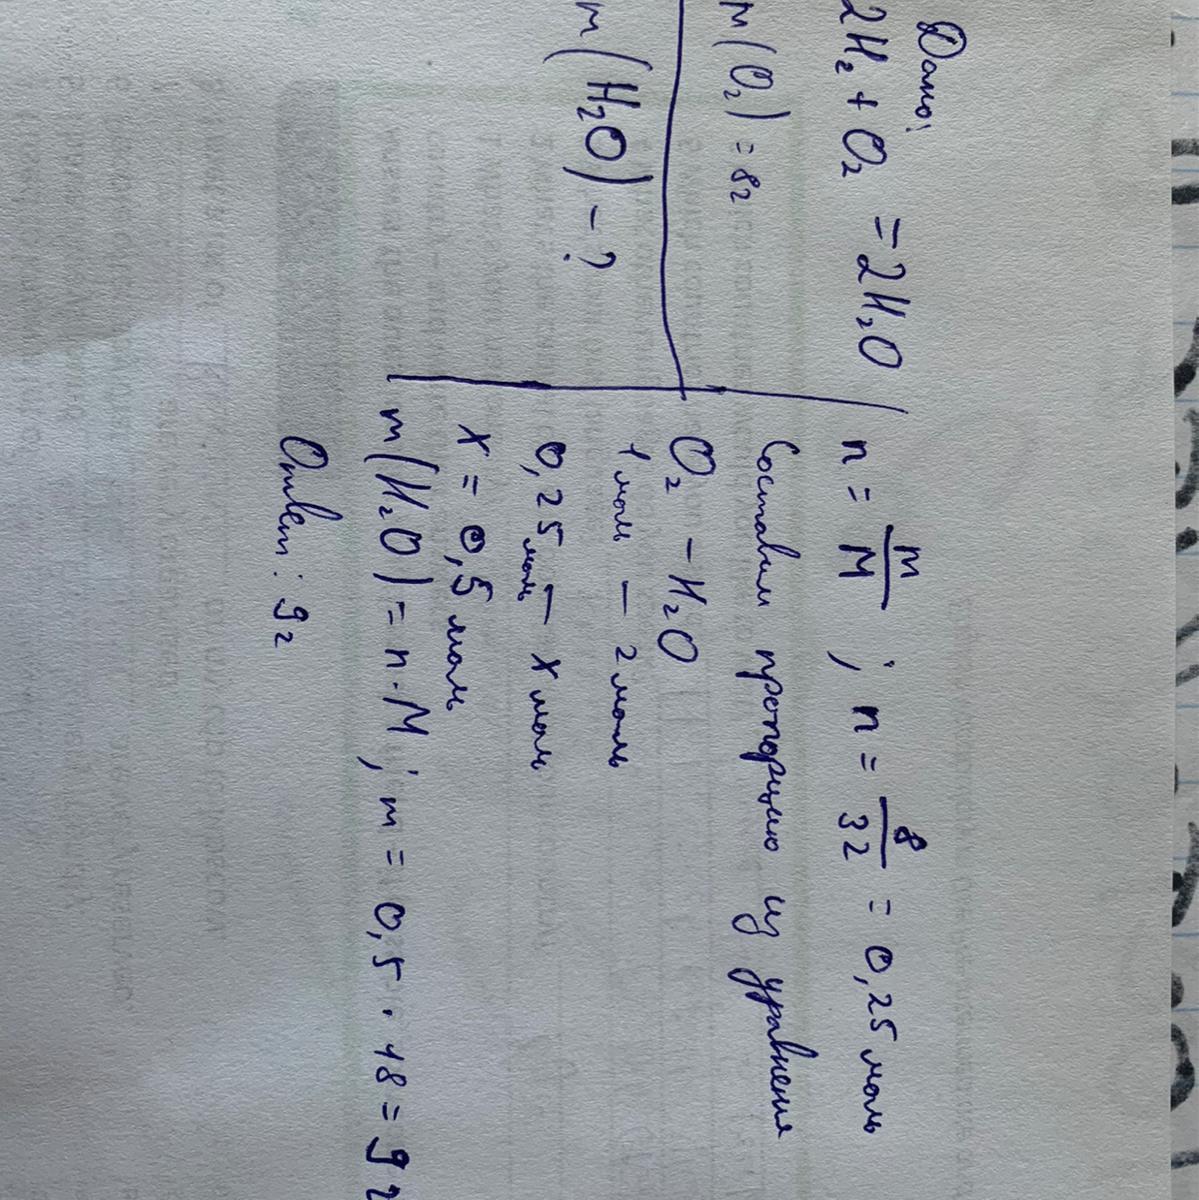 Дано:
2H₂ + O₂ = 2H₂O
m(O₂) = 8г
m(H₂O) - ?
n = m/M ; n = 8/32 = 0,25 моль
Составим пропорцию из уравнения
O₂ - H₂O
1 моль - 2 моль
0,25 моль - x моль
x = 0,5 моль
m(H₂O) = n · M ; m = 0,5 · 18 = 9г
Ответ: 9г